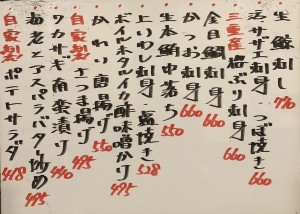 生鯨刺し 770
活サザエ刺身 つぼ焼き 660
三重産 いぶり刺身
金目鯛刺身 660
かつお刺身 660
生本鮪中落ち 550
上いわし刺身 塩焼き 528
ボイルホタルイカ酢味噌かけ 495
かわり唐揚げ 550
自家製 さつま揚げ 495
ワカサギ南蛮漬け 440
海老とアスパラバター炒め 495
自家製 ポテトサラダ 418